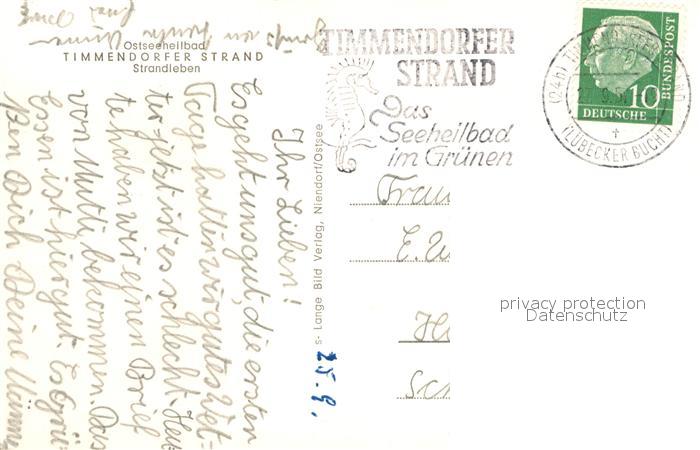 Ostseeheilbad
TIMMENDORFER STRAND
Strandleben
Ihr Lieben!
Es geht uns gut, die ersten
Tage hatten wir gutes Wet-
ter, jetzt ist es schlecht. Heu-
te haben wir einen Brief
von Mutti bekommen. Das
Essen ist hier gut. Es grü-
ßen Dich Deine
s- Lange Bild Verlag, Niendorf/Ostsee
25. 9.
TIMMENDORFER
STRAND
Das
Seeheilbad
im Grünen
(24b) TIMMENDORFER STRAND
(LÜBECKER BUCHT)
10
DEUTSCHE
BUNDESPOST
Frau
privacy protection
Datenschutz